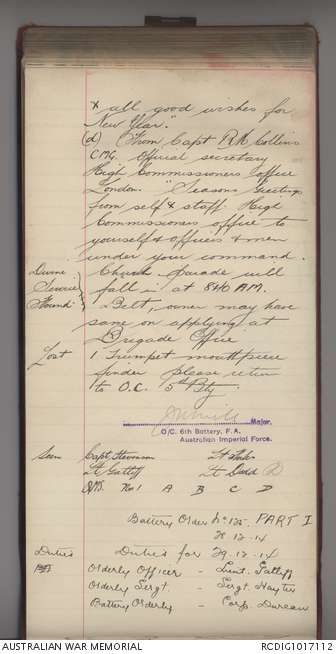 & all good wishes for
New Year."
(d) "From Capt R.H. Collins
C.M.G. Official secretary
High Commissioners Office
London. "Seasons Greetings
from self & staff High
Commissioners office to
yourself & officers & men
under your command.
Divine Service } Church Parade will
fall in at 8.40 A.M.
Found. Belt, owner may have
same on applying at
Brigade Office
Lost 1 Trumpet mouthpiece
finder please return
to O.C. 5th Bty.
Major,
O/C. 6th Battery, F.A.
Australian Imperial Force.
Seen Capt. Stevenson Lt
Lt Gatliff Lt Dodd
No 1 A B C D
Battery Order No 125. PART I
28.12.14
Duties Duties for 29.12.14
Orderly Officer - Lieut. Gatliff
Orderly Sergt. - Sergt. Hayter
Battery Orderly - Corp. Dureau
AUSTRALIAN WAR MEMORIAL
RCDIG1017112